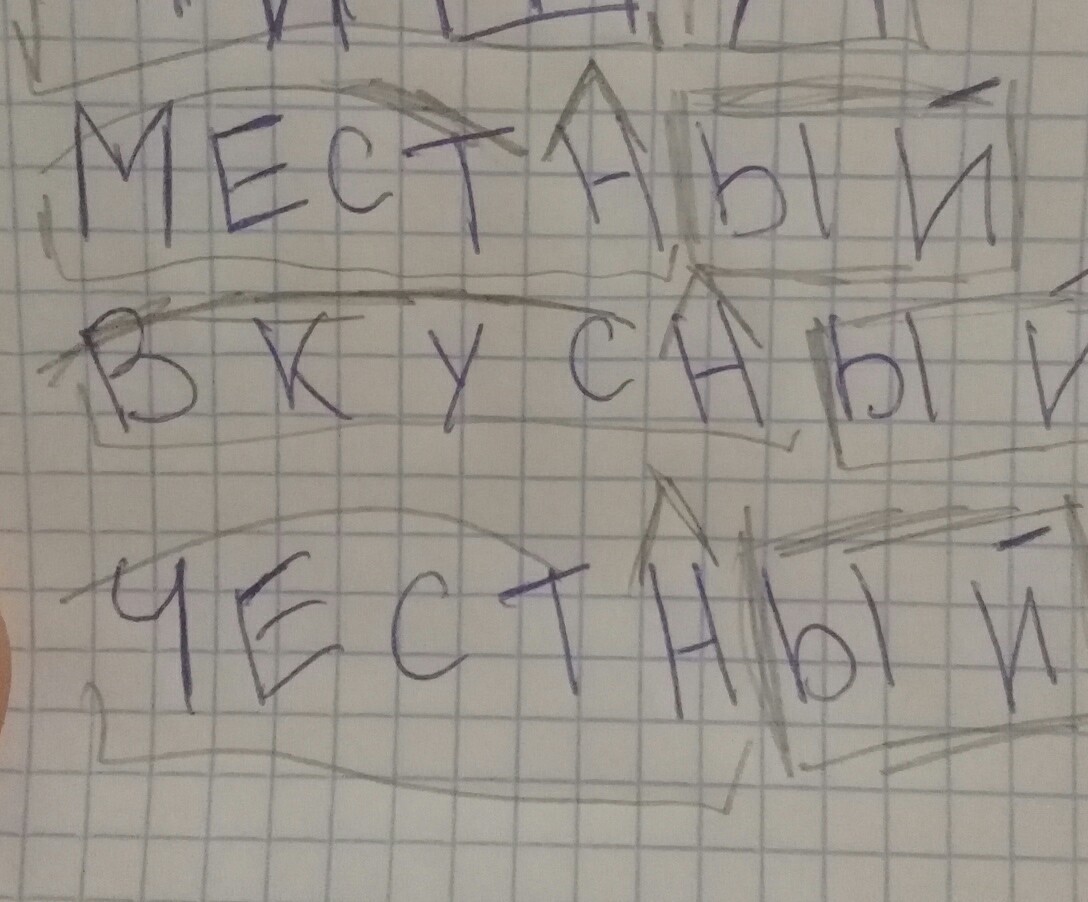 МЕСТНЫЙ
ВКУСНЫЙ
ЧЕСТНЫЙ